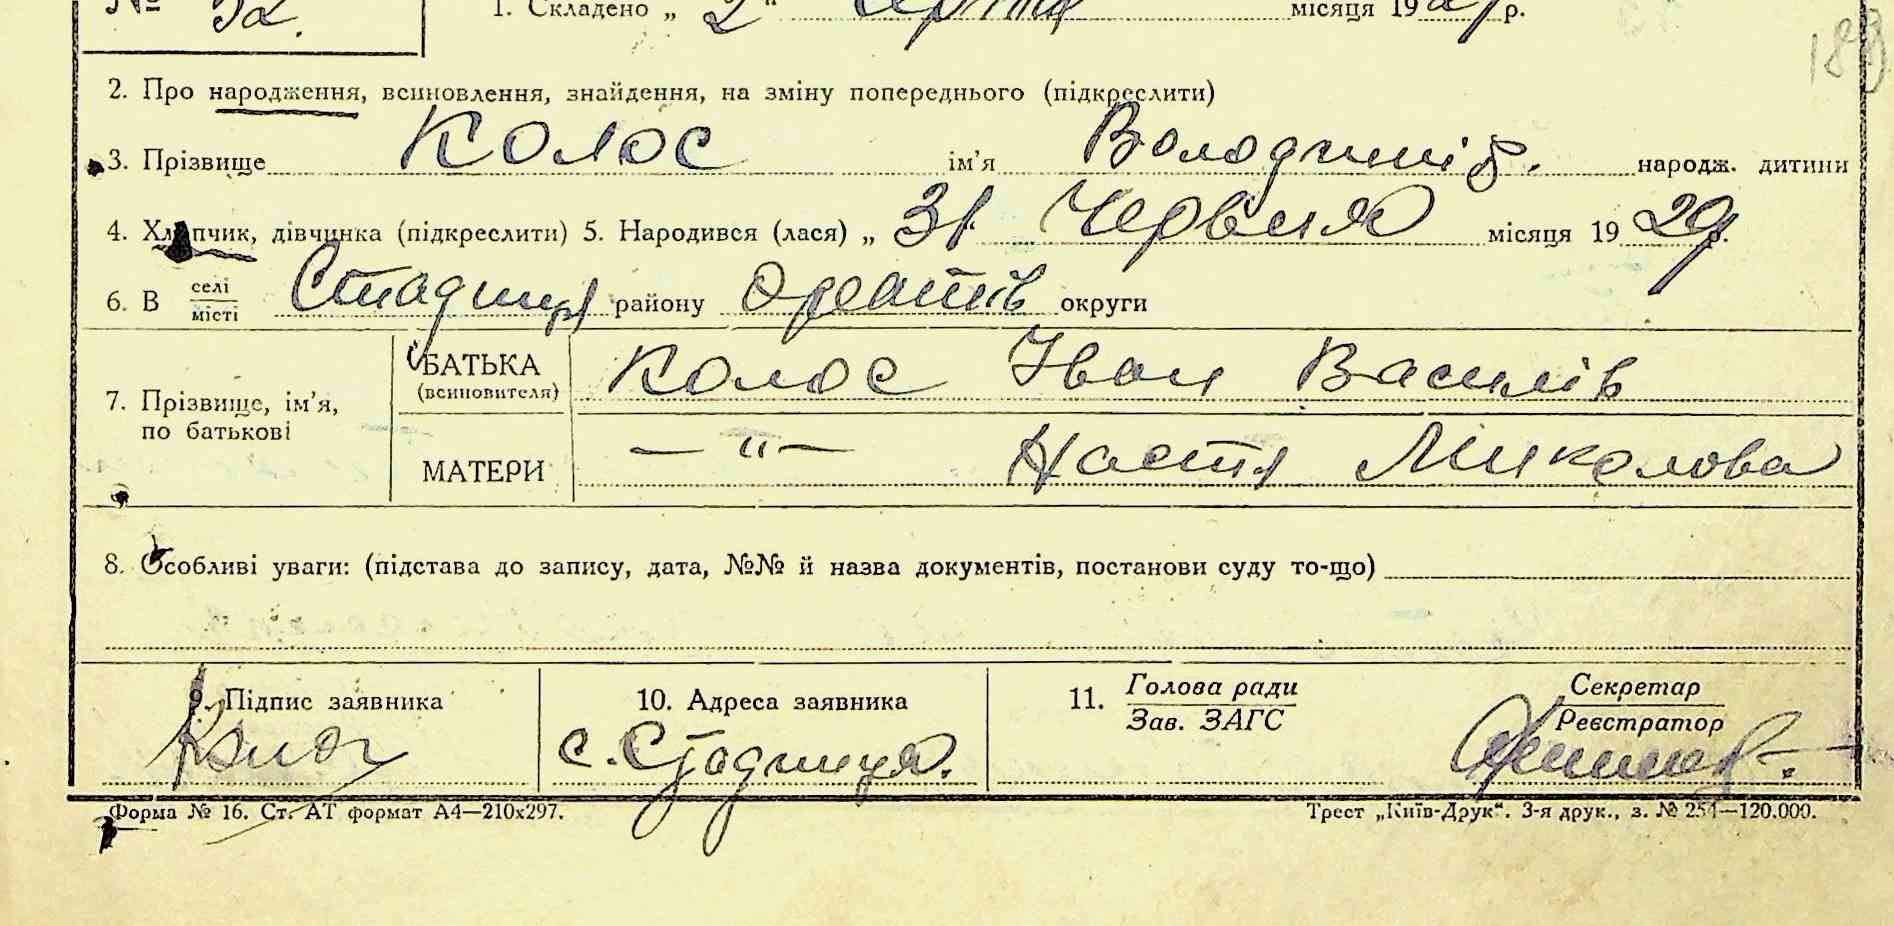 № 52. 1. Складено „ 2 “ серпня місяця 1929 р.
189
2. Про народження, всиновлення, знайдення, на зміну попереднього (підкреслити)
3. Прізвище Колос ім’я Володимір. народж. дитини
4. Хлопчик, дівчинка (підкреслити) 5. Народився (лася) „ 31 Червня місяця 1929 р.
6. В селі/місті Стадниця району Оратів округи
7. Прізвище, ім’я, по батькові
БАТЬКА (всиновителя) Колос Іван Василів
МАТЕРИ — " — Настя Миколова
8. Особливі уваги: (підстава до запису, дата, №№ й назва документів, постанови суду то-що)
9. Підпис заявника 10. Адреса заявника 11. Голова ради/Зав. ЗАГС Секретар/Реєстратор
с. Стадниця.
Форма № 16. Ст. АТ формат А4—210х297. Трест „Київ-Друк“. 3-я друк., з. № 254—120.000.